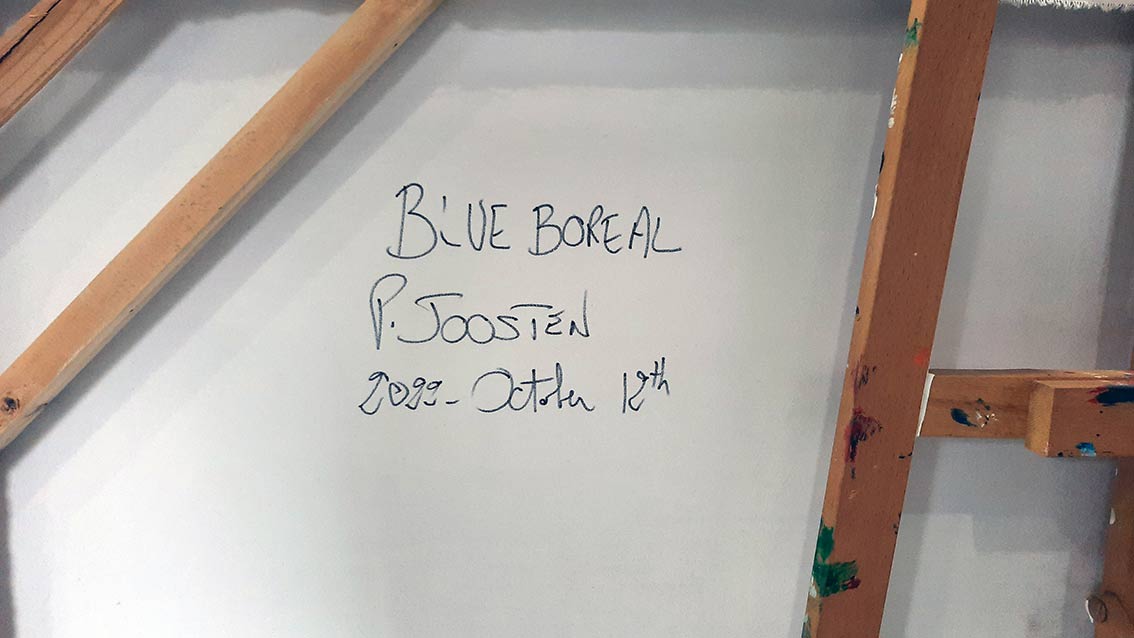 BLUE BOREAL
P. JOOSTEN
2022 - October 12th